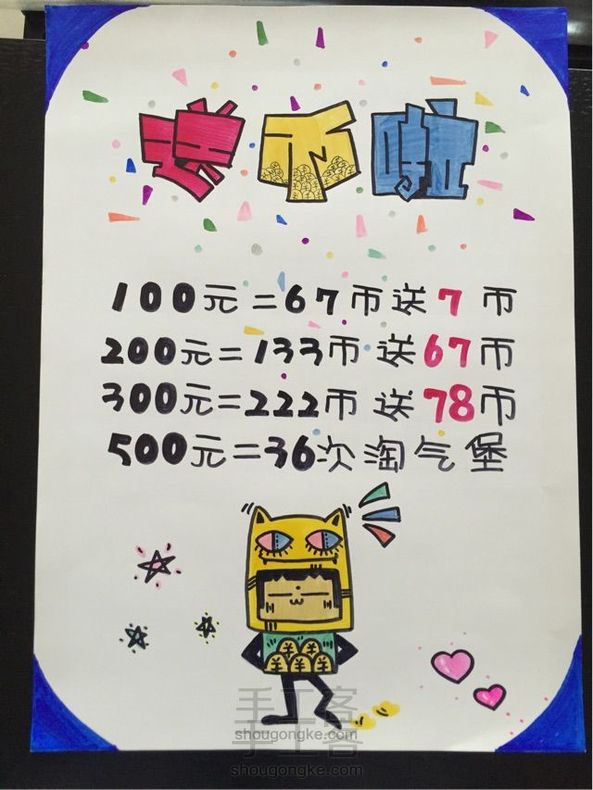 发币啦
100元=67币送7币
200元=133币送67币
300元=222币送78币
500元=36次淘气堡
手工客
shougongke.com
手工客
shougongke.com